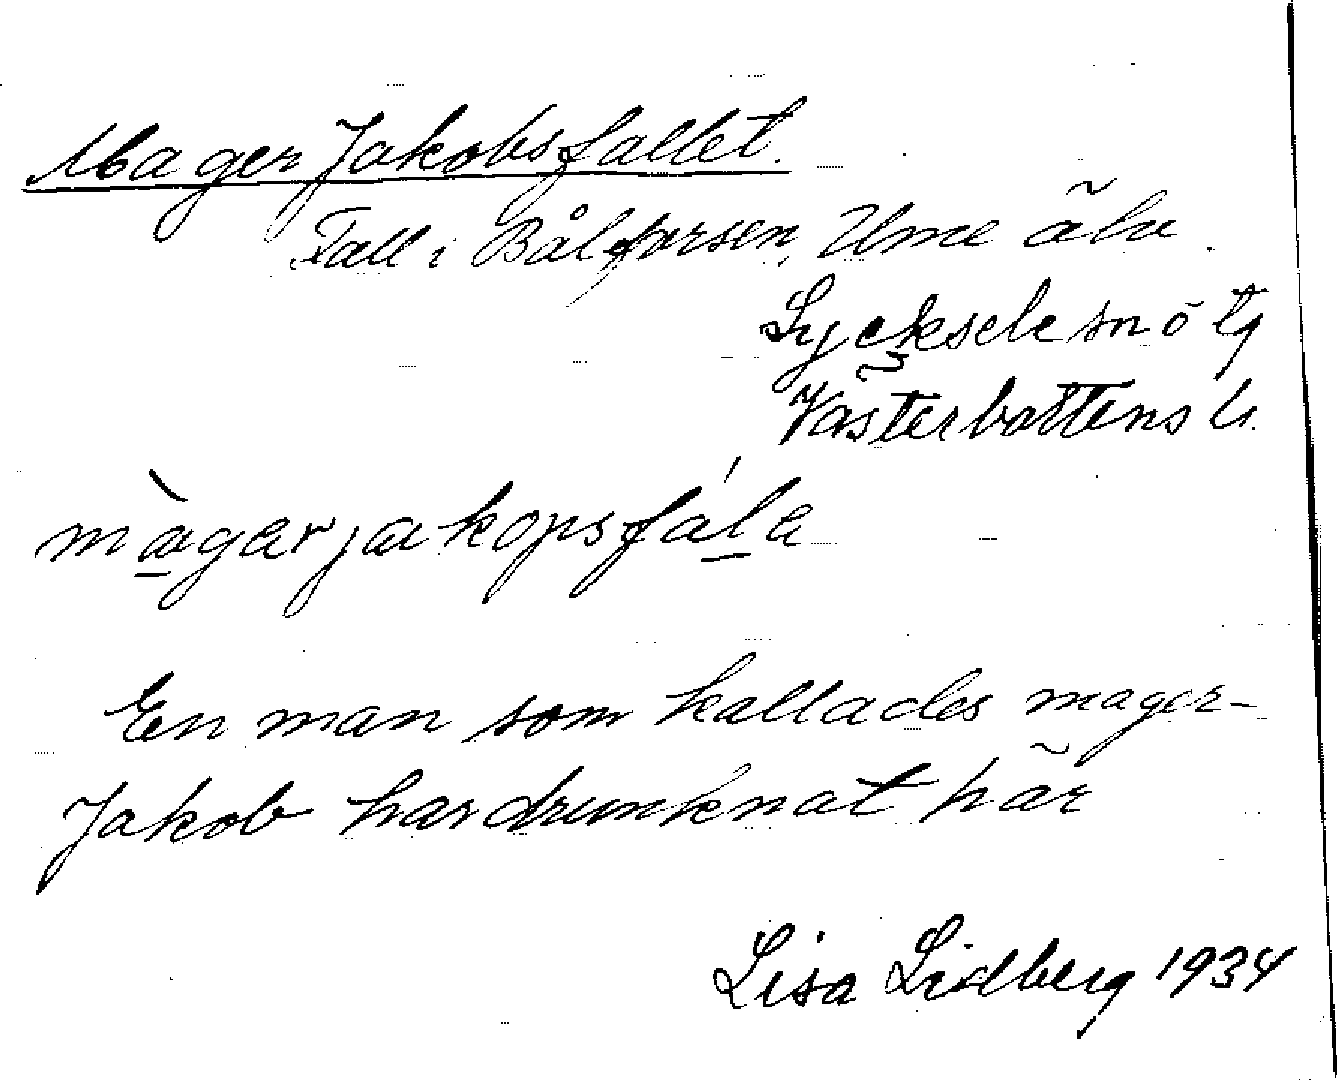 Mager Jakobsfallet.
Fall i Bålforsen, Ume älv.
Lycksele sn o tg
Västerbottens l.
màgar jakopsfála
En man som kallades mager-
Jakob har drunknat här
Lisa Lidberg 1934